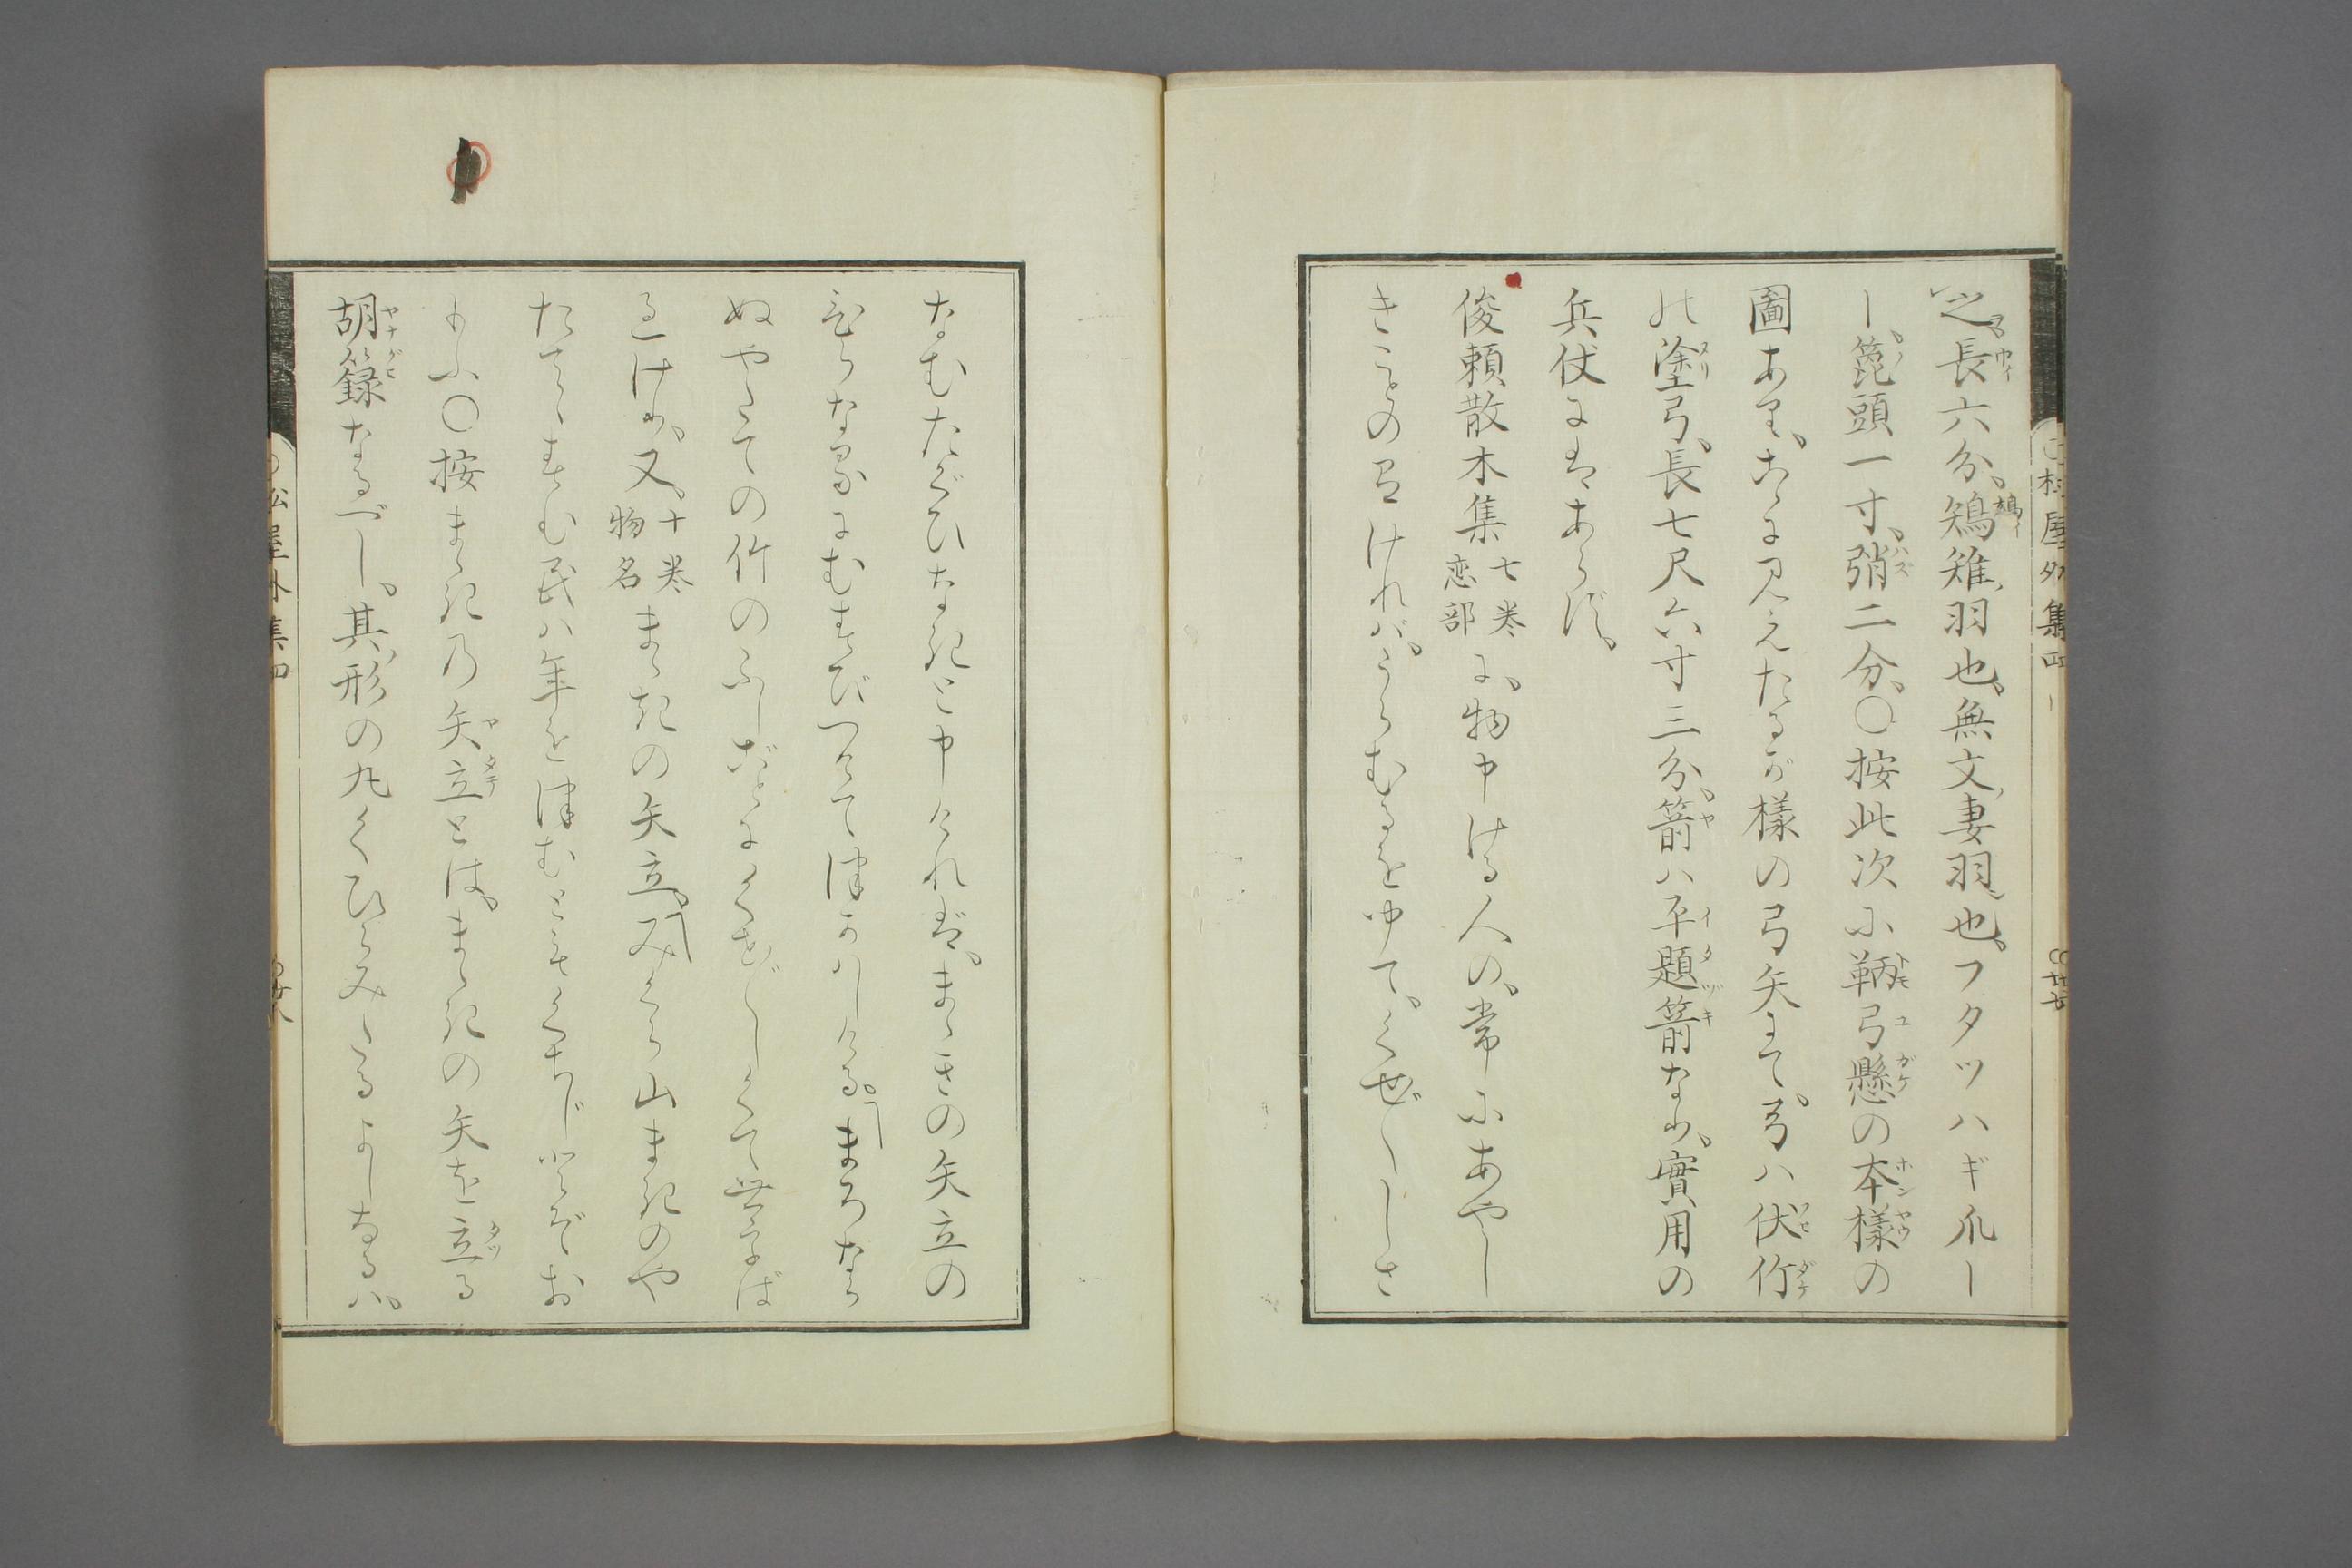 之、長六分、鵄雉羽也、無文妻羽也、フタツハギ爪ー
ー、箆頭一寸、弰二分、〇按此次に鞆弓懸の本樣の
圖あり、こゝに見えたるが樣の弓矢にて、弓ハ伏竹
の塗弓、長七尺六寸三分、箭ハ平題箭なり、實用の
兵仗にはあらず、
俊頼散木集七巻恋部に、物申ける人の、常にあやし
きことの みけれバ、うらむるを ゆて、くぜ〳〵しさ
なむたぐひなきと申けれバ、まゝきの矢立の
むらなるにむすびつけてつかハしける。「まろなら
ぬやたての竹のふしごとにくせ〴〵しくて
るけり、又、十巻物名まゝきの矢立、「みくら山まきのや
たてゝすむ民ハ年をつむともくちじとぞお
もふ〇按まゝきの矢立とは、まゝきの矢を立る
胡籙なるべし、其形の丸くひらみたるよしなるハ、
松屋外集四
廿七
松屋外集四
廿八